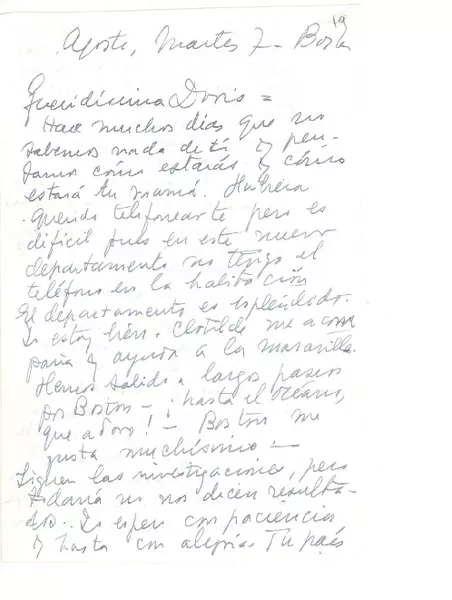 19
Agosto, Martes 7 - Boston
Queridísima Doris =
Hace muchos días que no
sabemos nada de ti y pen-
samos cómo estarás y cómo
estará tu mamá. Hubiera
querido telefonearte pero es
difícil pues en este nuevo
departamento no tengo el
teléfono en la habitación
El departamento es espléndido.
Yo estoy bien. Clotilde me acom
paña y ayuda a la maravilla.
Hemos salido a largos paseos
por Boston - ¡hasta el océano,
que adoro! - Boston me
gusta muchísimo -
Siguen las investigaciones, pero
todavía no nos dicen resulta-
dos. Yo espero con paciencia
y hasta con alegría. Tu país